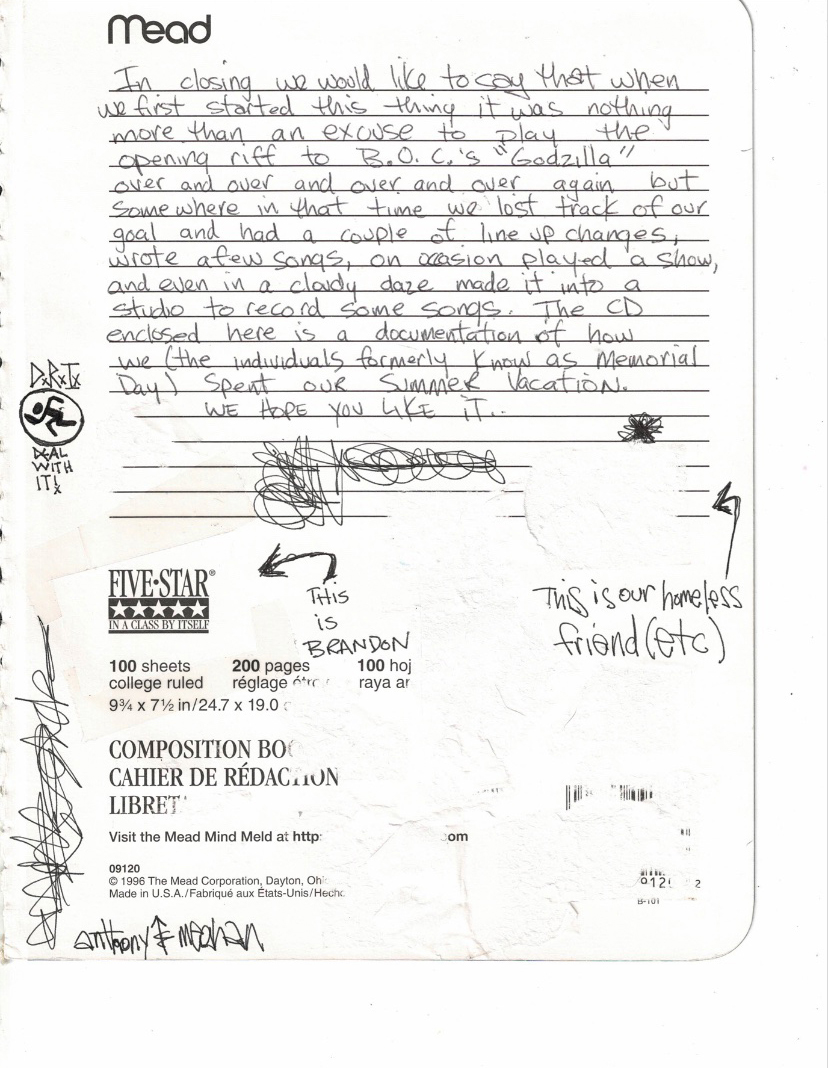 Mead
In closing we would like to say that when
we first started this thing it was nothing
more than an excuse to play the
opening riff to B.O.C.'s "Godzilla"
over and over and over and over again but
somewhere in that time we lost track of our
goal and had a couple of line up changes,
wrote a few songs, on occasion played a show,
and even in a cloudy daze made it into a
studio to record some songs. The CD
enclosed here is a documentation of how
we (the individuals formerly know as Memorial
Day) spent our summer vacation.
WE HOPE YOU LIKE IT..
DxRxIx
DEAL
WITH
IT!x
FIVE★STAR®
IN A CLASS BY ITSELF
THIS
is
BRANDON
This is our homeless
friend (etc)
100 sheets 200 pages 100 hoj
college ruled réglage raya ar
9¾ x 7½ in/24.7 x 19.0
COMPOSITION BO
CAHIER DE RÉDACTION
LIBRET
Visit the Mead Mind Meld at http: com
09120
© 1996 The Mead Corporation, Dayton, Oh
Made in U.S.A./Fabriqué aux États-Unis/Hecho
B-101
anthony & meghan